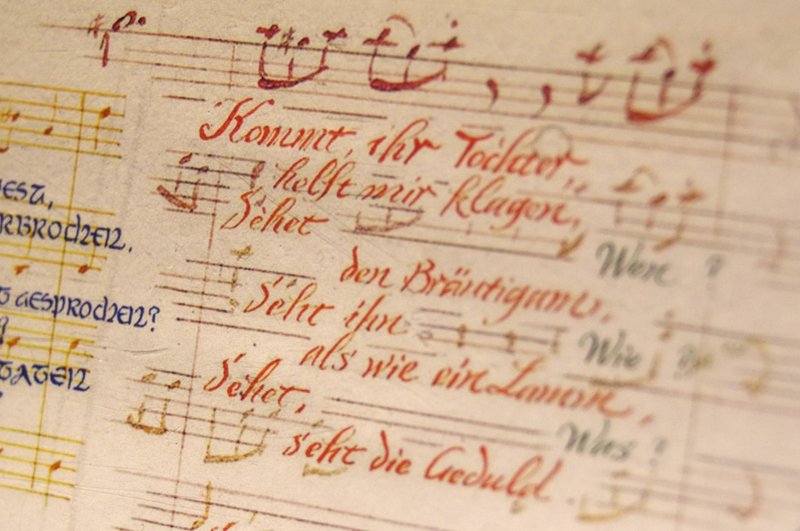 Kommt, ihr Töchter,
helft mir klagen,
Sehet
Wen ?
den Bräutigam,
Seht ihn
Wie ?
als wie ein Lamm,
Sehet,
Was ?
seht die Geduld
GESPROCHEN?